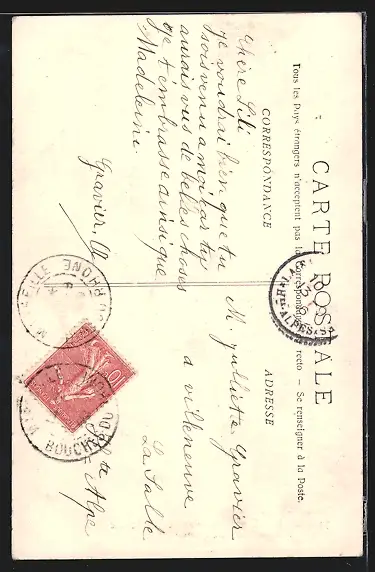 CARTE POSTALE
Tous les Pays étrangers n'acceptent pas la Correspondance au recto — Se renseigner à la Poste.
CORRESPONDANCE
ADRESSE
Chere Lili
je voudrai bien que tu
sois venu a mai lar tu
aurais vus de belles choses
je t embrasse ainsi que
Madeleine.
Gravier, A
M. julliete Gravier
a villeneuve
La Salle
Hte Alpe
10
BOUCHES
MARSEILLE
DU RHONE
LA
Htes ALPES